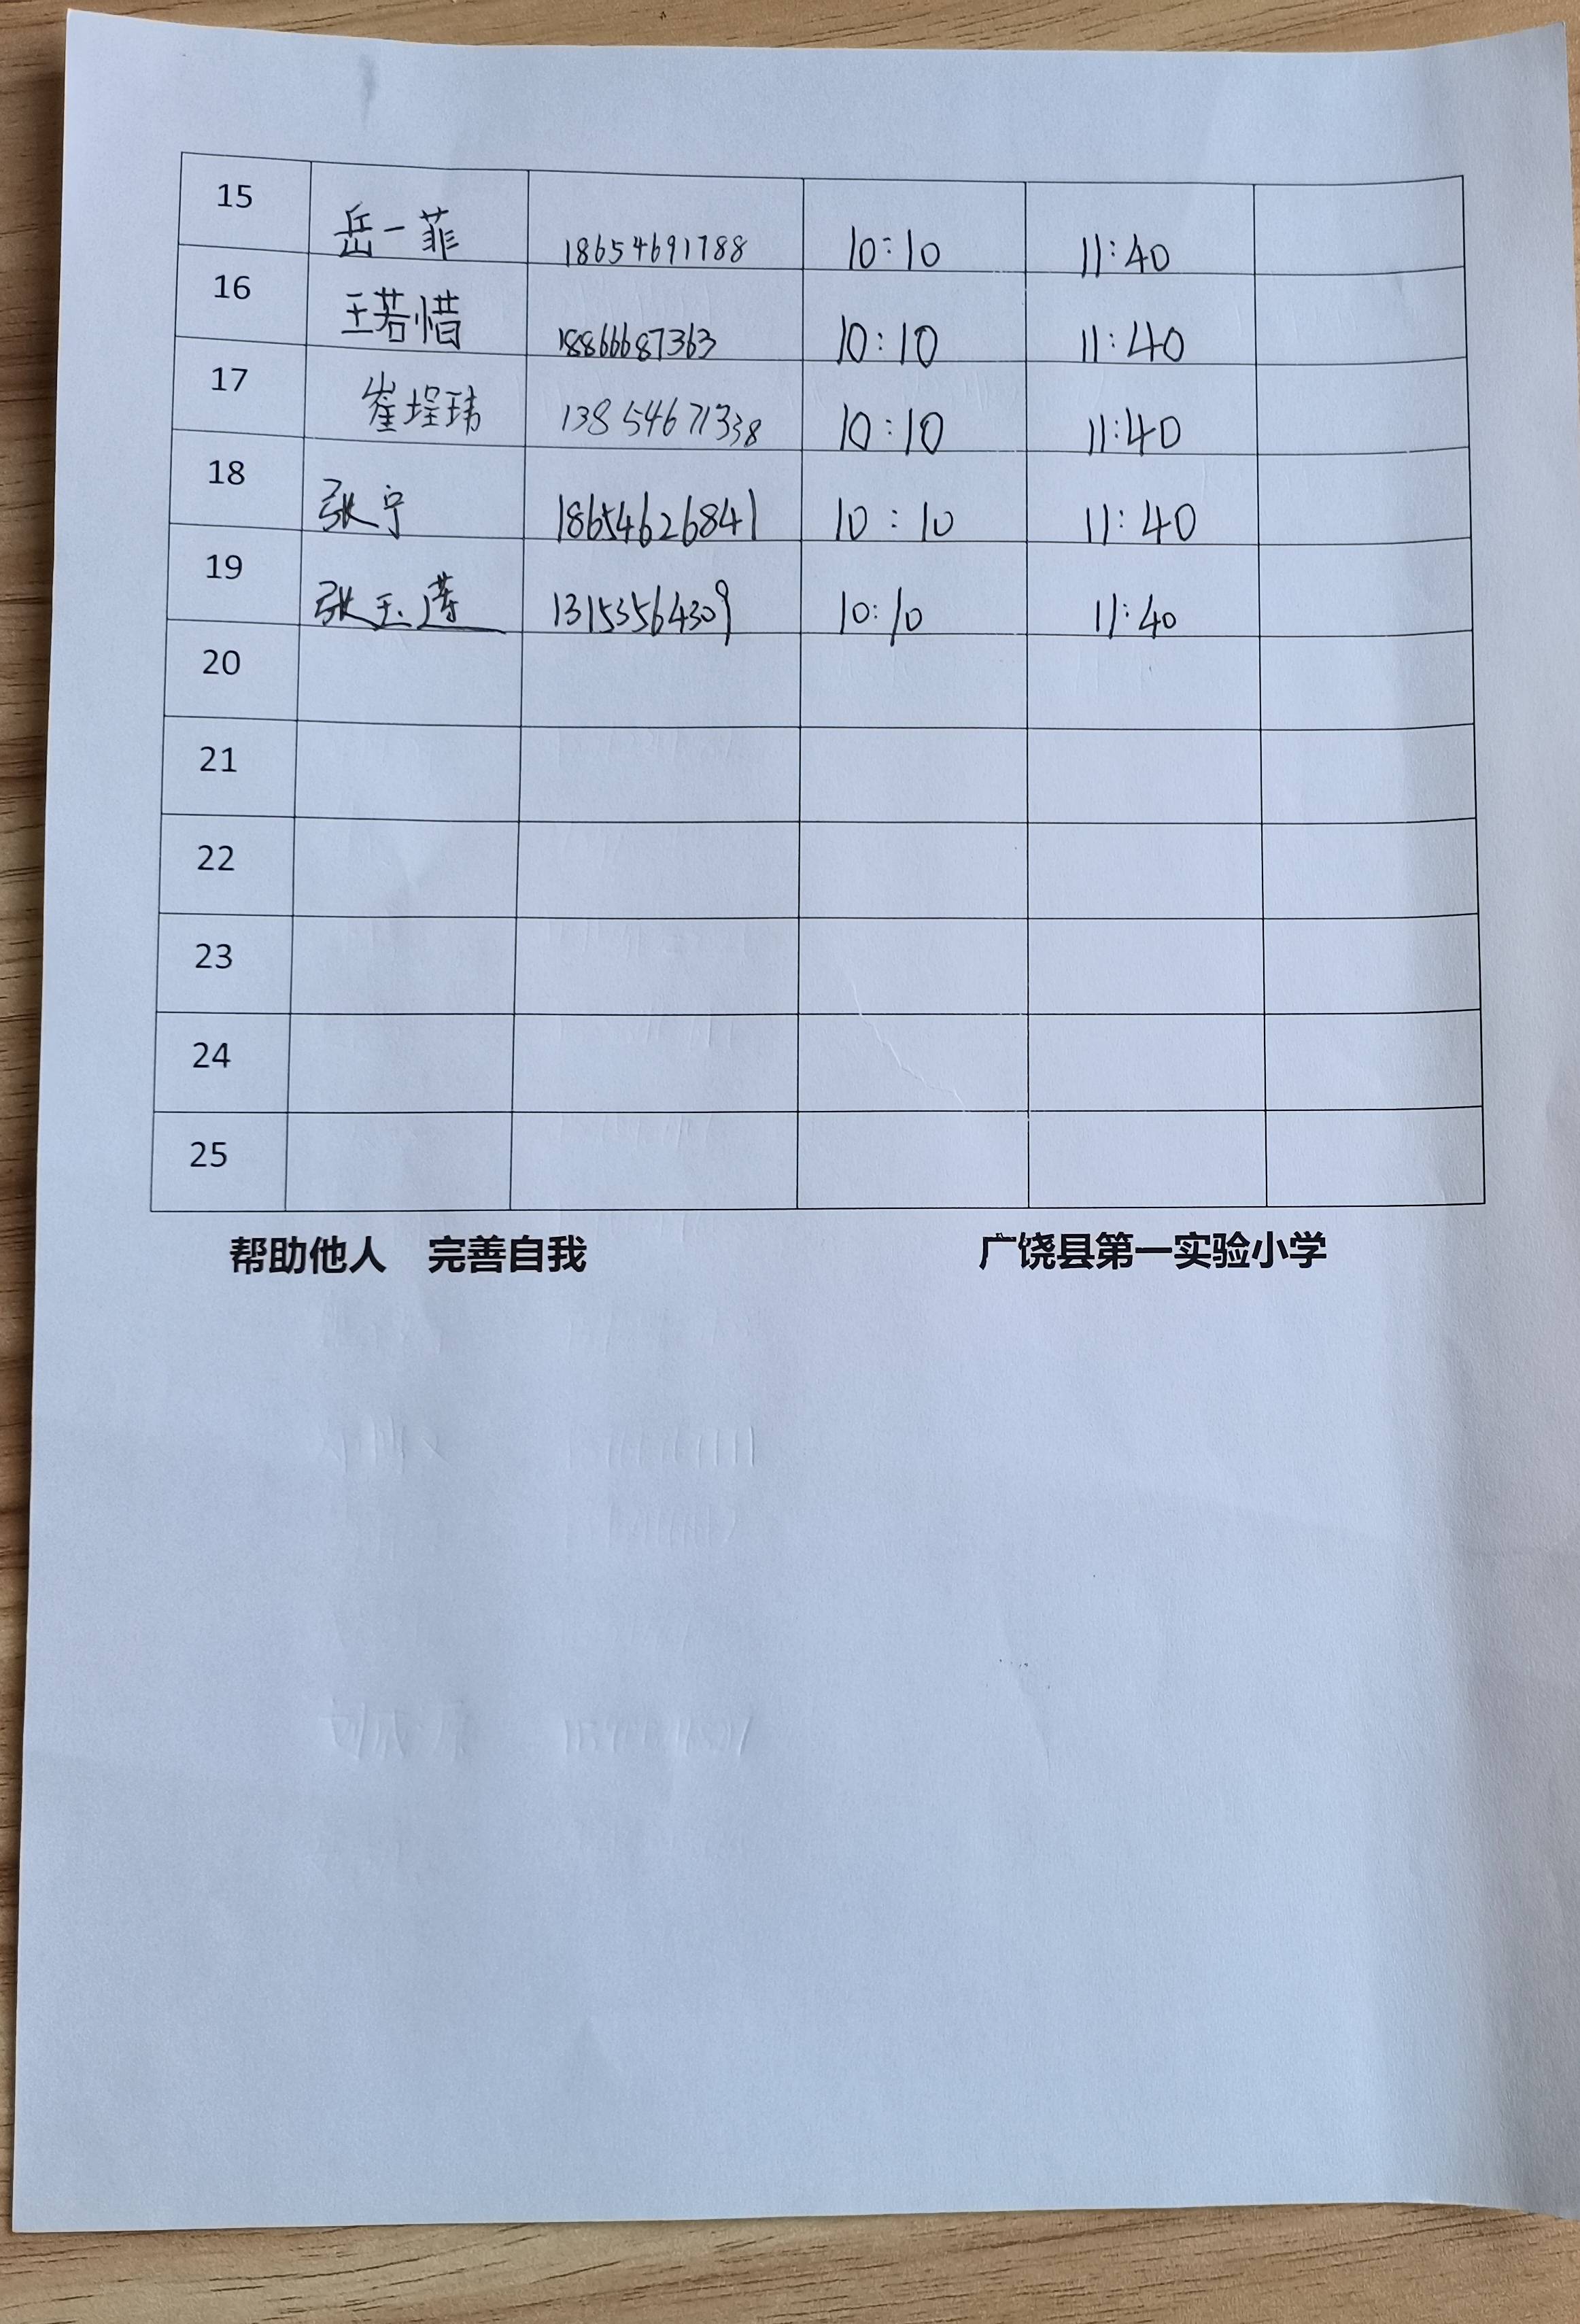 15 岳一菲 18654691788 10:10 11:40
16 王若惜 18866687363 10:10 11:40
17 崔埕玮 13854671338 10:10 11:40
18 张宁 18654626841 10:10 11:40
19 张玉莲 13153564309 10:10 11:40
20
21
22
23
24
25
帮助他人 完善自我 广饶县第一实验小学